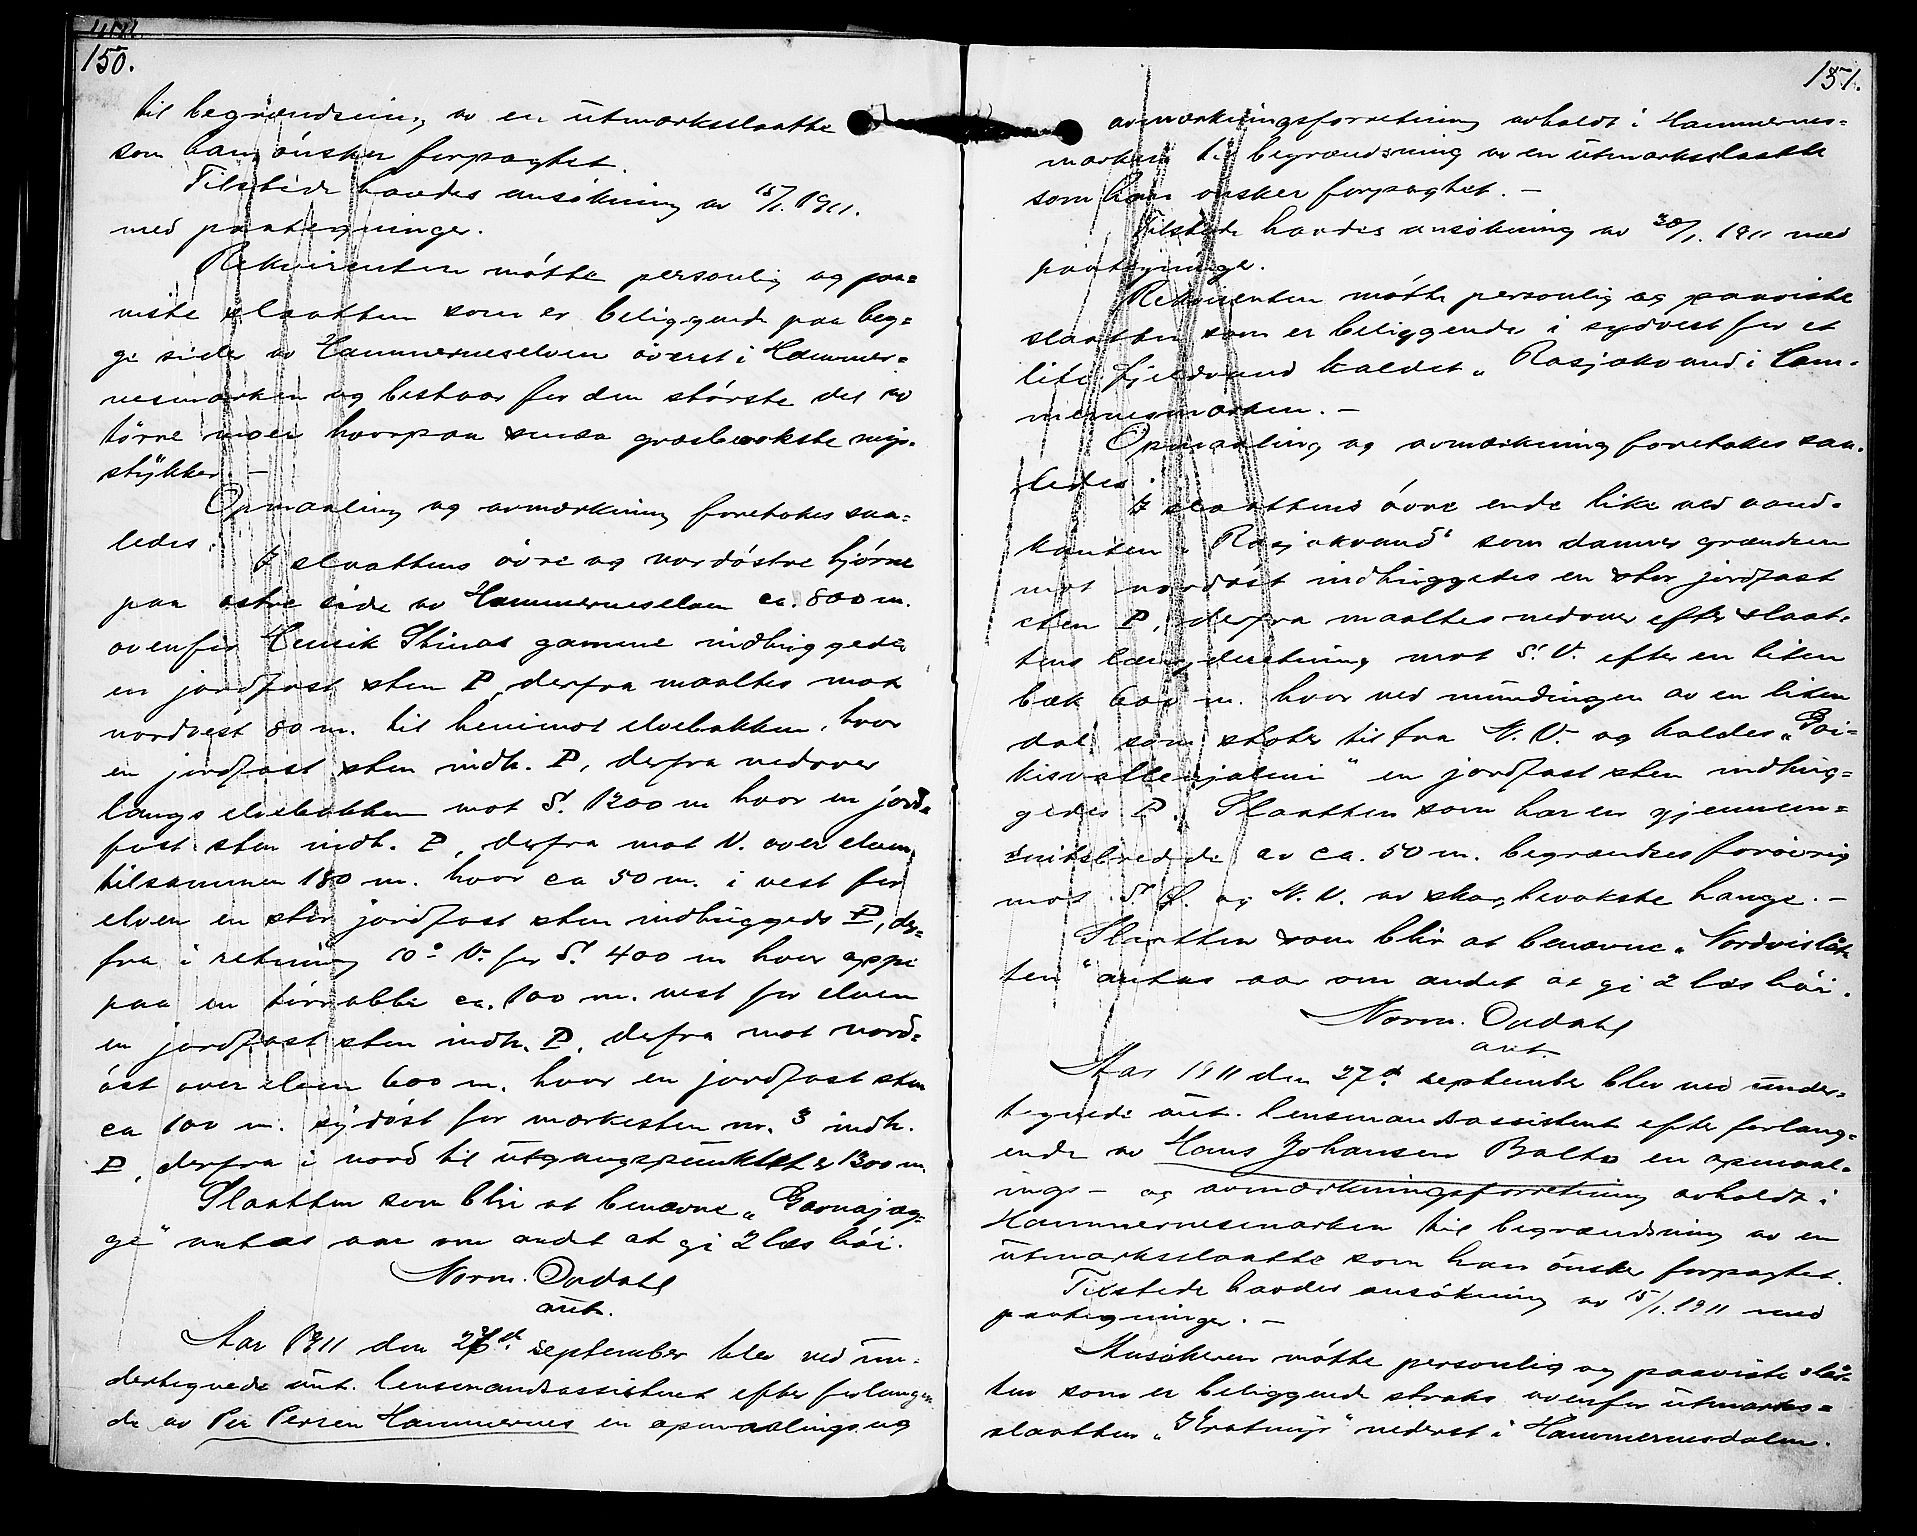 150.
til begrændsning av en utmarksslaatte
som han ønsker forpagtet.
Tilstede havdes ansøkning av 15/1. 1911.
med paategninger.
Rekvirenten møtte personlig og paa=
viste slaatten som er beliggende paa beg=
ge sider av Hammerneselven øverst i Hammer=
nesmarken og bestaar for den største del av
tørre moer hvorpaa smaa græsbevokste myr-
stykker. -
Opmaaling og avmærkning foretokes saa=
ledes:
I slaattens øvre og nordøstre hjørne
paa østre side av Hammerneselven ca. 800 m.
ovenfor Henrik Stinas gamme indhuggedes
en jordfast sten P, derfra maaltes mot
nordvest 80 m. til henimot elvebakken, hvor
en jordfast sten indh. P, derfra nedover
langs elvebakken mot S. 1200 m hvor en jord=
fast sten indh. P, derfra mot V. over elven
tilsammen 180 m. hvor ca 50 m. i vest for
elven en stor jordfast sten indhuggeds P, der=
fra i retning 10° V. for S. 400 m hvor oppe
paa en tørrabbe ca. 100 m. vest for elven
en jordfast sten indh. P, derfra mot nord=
øst over elven 600 m. hvor en jordfast sten
ca 100 m. sydøst for merkesten nr. 3 indh.
P, derfra i nord til utgangspunktet 1300 m
Slaatten som blir at benævne „Gævnajæg=
ge" antas aar om andet at gi 2 læs høi.
Norm. Opdahl
aut.
Aar 1911 den 27d. september blev ved un=
dertegnede aut. lensmandsassistent efter forlangen
de av Per Persen Hammernes en opmaalings og
151.
avmærkningsforretning avholdt i Hammernes=
marken til begrændsning av en utmarksslaatte
som han ønsker forpagtet. -
Tilstede havdes ansøkning av 30/1. 1911 med
paategninger.
Rekvirenten møtte personlig og paaviste
slaatten som er beliggende i sydvest for et
lite fjeldvand kaldet „Rasjokvand i Ham-
mernesmarken. -
Opmaaling og avmærkning foretokes saa-
ledes:
I slaattens øvre ende like ved vand-
kanten „Rasjokvand" som danner grændsen
mot nordøst indhuggedes en stor jordfast
sten P, derfra maaltes nedover efter slaat-
tens længderetning mot S.V. efter en liten
bæk 600 m. hvor ved mundingen av en liten
dal som støter til fra N.V. og kaldes „Goi-
kisvalleajalmi" en jordfast sten indhug=
gedes P. Slaatten som har en gjennem=
snitsbredde av ca. 50 m. begrændses forøvrig
mot S.Ø. og N.V. av skogbevokste hauge. -
Slaatten som blir at benævne „Nordvislåt
ten" antas aar om andet at gi 2 læs høi.
Norm. Opdahl
aut.
Aar 1911 den 27d. september blev ved under-
tegnede aut. lensmandsassistent efter forlang=
ende av Hans Johansen Balto en opmaal=
ings- og avmærkningsforretning avholdt i
Hammernesmarken til begrændsning av en
utmarksslaatte som han ønsker forpagtet.
Tilstede havdes ansøkning av 15/1. 1911 med
paategninger. -
Ansøkeren møtte personlig og paaviste slåt
ten som er beliggende straks ovenfor utmarks=
slaatten „Kratmyr" nederst i Hammernesdalen.